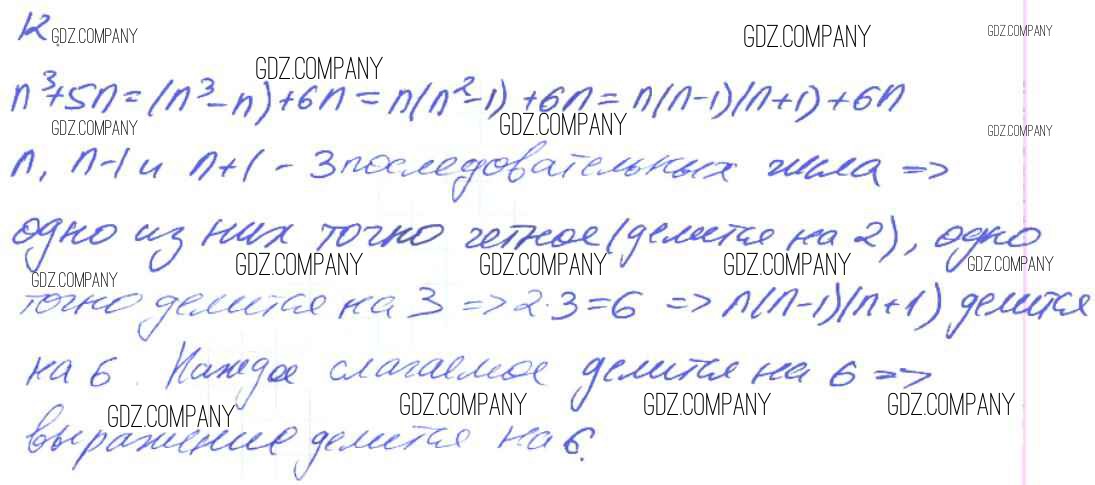 12
GDZ.COMPANY GDZ.COMPANY GDZ.COMPANY
GDZ.COMPANY
n³+5n=(n³-n)+6n=n(n²-1)+6n=n(n-1)(n+1)+6n
GDZ.COMPANY GDZ.COMPANY GDZ.COMPANY
n, n-1 и n+1 - 3 последовательных числа =>
одно из них точно четное (делится на 2), одно
GDZ.COMPANY GDZ.COMPANY GDZ.COMPANY GDZ.COMPANY GDZ.COMPANY
точно делится на 3 => 2·3=6 => n(n-1)(n+1) делится
на 6. Каждое слагаемое делится на 6 =>
GDZ.COMPANY GDZ.COMPANY GDZ.COMPANY GDZ.COMPANY
выражение делится на 6.